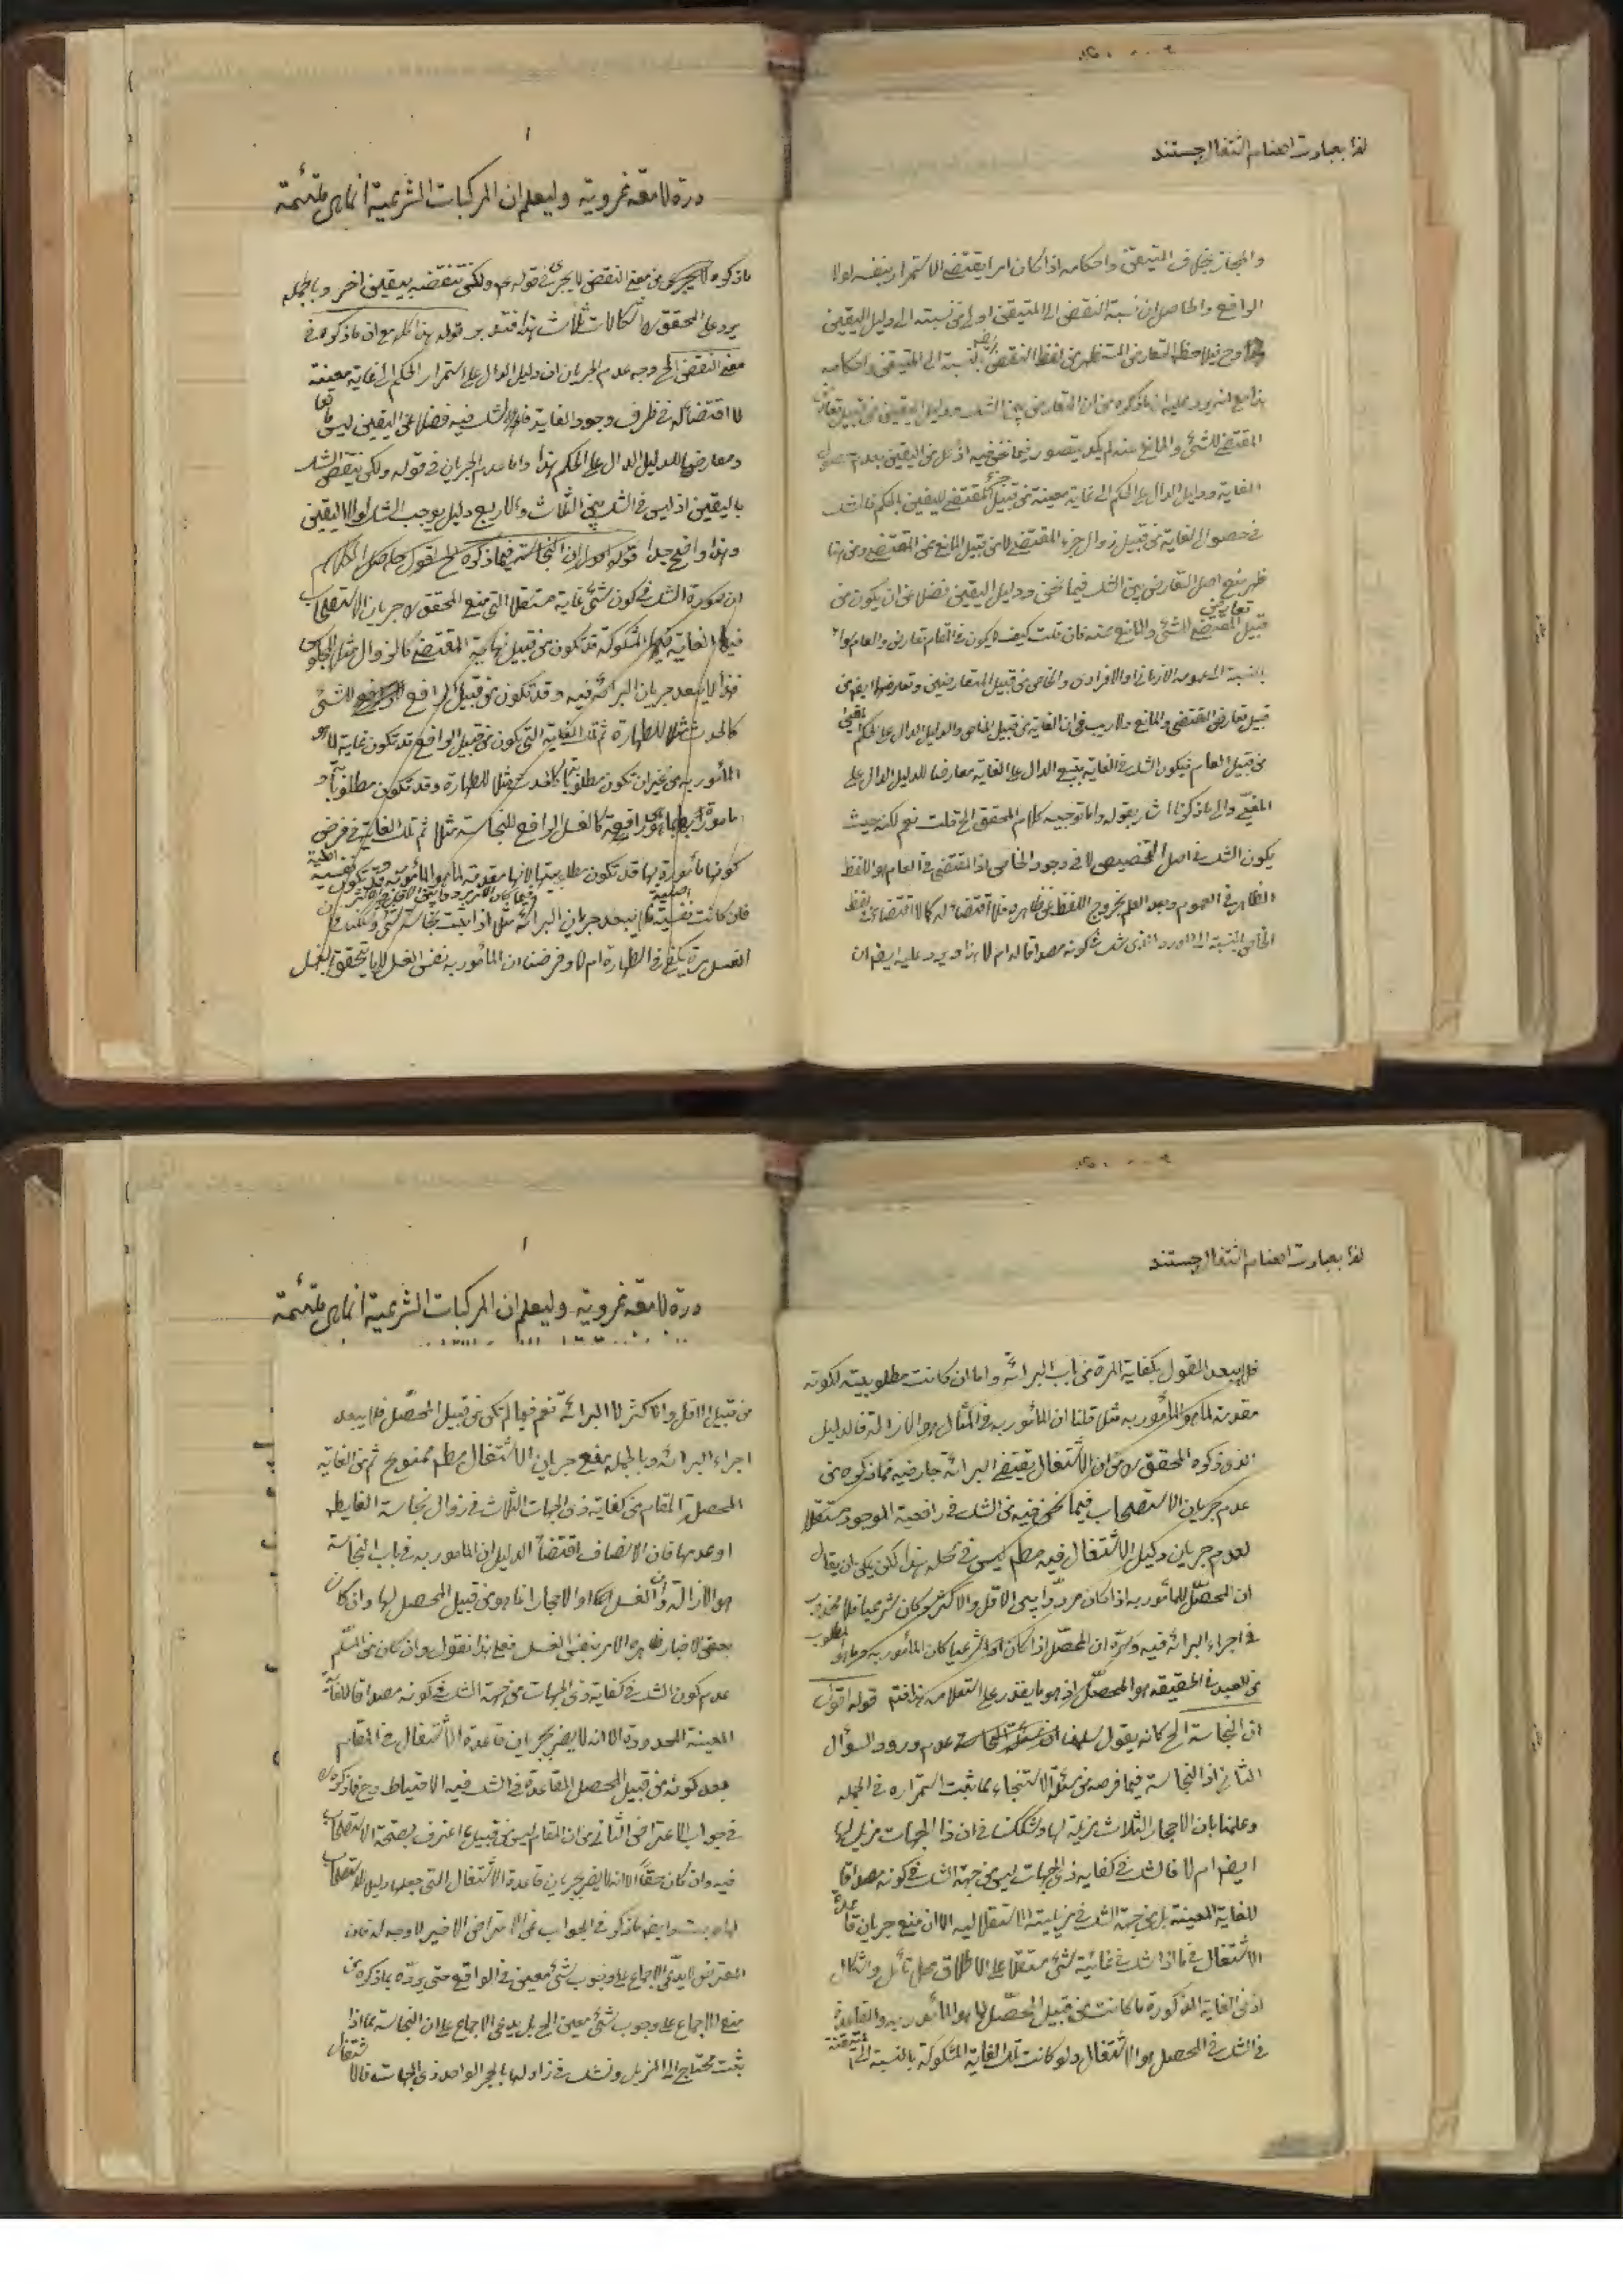 لذا بعبارت اهتمام اشتغال جستند
والمجاز بخلاف المتيقن واحكامه اذا كان امرا يقتضى الاستمرار بنفسه لولا
الرافع والحاصل ان نسبة النقض الى المتيقن اولى من نسبته الى دليل اليقين
وح فيلاحظ التعارض المستظهر من لفظ النقض ايض بالنسبة الى المتيقن واحكامه
هذا مع انه يرد عليه ان ما ذكره من ان التعارض بين الشك ودليل اليقين من قبيل تعارض
المقتضى للشئ والمانع عنه لم يكد يتصور فيما نحن فيه اذ كل من اليقين بعدم حصول
الغاية ودليل الدال على الحكم الى غاية معينة من قبيل جزء المقتضى لليقين بالحكم فالشك
فى حصول الغاية من قبيل زوال جزء المقتضى لا من قبيل المانع عن المقتضى ومن هنا
ظهر منع اصل التعارض بين الشك فيما نحن ودليل اليقين فضلا عن ان يكون من
قبيل تعارض المقتضى للشئ والمانع عنه فان قلت كيف لا يكون فى المقام تعارض والعام سواء
بالنسبة الى عمومه الازمانى او الافرادى والخاص من قبيل المتعارضين وتعارضهما ايض من
قبيل تعارض المقتضى والمانع ولا ريب فى ان الغاية من قبيل الخاص والدليل الدال على الحكم المغيى
من قبيل العام فيكون الشك فى الغاية بتبع الدال على الغاية معارضا للدليل الدال على
المغيى والى ما ذكرنا اشار بقوله واما توجيه كلام المحقق الخ قلت نعم لكنه حيث
يكون الشك فى اصل التخصيص لا فى وجود الخاص اذ المقتضى فى العام هو اللفظ
الظاهر فى العموم وبعد العلم بخروج اللفظ عن ظاهره فلا اقتضاء له كما لا اقتضاء فى لفظ
الخاص بالنسبة الى المورد الذى شك فى كونه مصداقا له ام لا هذا ويرد عليه ايض ان
١
درة لامعة غروية وليعلم ان المركبات الشرعية انما هى ملتئمة
ما ذكره من معنى النقض لا يجرى فى قوله ع ولكن تنقضه بيقين اخر وبالجمله
يرد على المحقق ره اشكالات ثلاث هذا فتدبر قوله هذا كله مع ان ما ذكره فى
معنى النقض الخ وجه عدم الجريان ان دليل الدال على استمرار الحكم الى غاية معينة
لا اقتضاء له فى ظرف وجود الغاية فالشك فيه فضلا عن اليقين ليس مانعا
ومعارضا للدليل الدال على الحكم هذا واما عدم الجريان فى قوله ولكن ينقض الشك
باليقين اذ ليس فى الشك بين الثلاث والاربع دليل يوجب الشك لولا اليقين
وهذا واضح جدا قوله اقول ان النجاسة فيما ذكره الخ اقول حاصل الكلام
ان صورة الشك فى كون شئ غاية مستقلا التى منع المحقق ره جريان الاستصحاب
فيها الغاية المشكوكة قد تكون من قبيل نهاية المقتضى كالزوال مثلا للجلوس
فهذا لا يبعد جريان البرائة فيه وقد تكون من قبيل الرافع للشئ
كالحدث مثلا للطهارة ثم تلك الغاية التى يكون من قبيل الرافع قد تكون غاية لما هو
المأمور به من غير ان تكون مطلوبا كالحدث مثلا للطهارة وقد تكون مطلوبا و
مأمورا بها رافعة كالغسل الرافع للنجاسة مثلا ثم تلك الغاية فى فرض
كونها مأمورة بها قد تكون مطلوبيتها لانها مقدمة لما هو المأمور به وقد تكون نفسية
فان كانت نفسية فلا يبعد جريان البرائة مثلا اذا ثبتت نجاسة شئ وشككنا
الغسل مرة يكفى فى الطهارة ام لا وفرضنا ان المأمور به نفس الغسل لا ما يتحقق بالغسل
لذا بعبارت اهتمام اشتغال جستند
فلا يبعد القول بكفاية المرة من باب البرائة واما ان كانت مطلوبيته لكونه
مقدمة لما هو المأمور به مثلا قلنا ان المأمور به فى المثال هو الازالة فالدليل
الذى ذكره المحقق ره من ان الاشتغال يقتضى البرائة جار فيه فما ذكره من
عدم جريان الاستصحاب فيما نحن فيه من الشك فى رافعية الموجود مستقلا
لعدم جريان دليل الاشتغال فيه مطم ليس فى محله هذا لكن يمكن ان يقال
ان المحصل للمأمور به اذا كان مرددا بين الاقل والاكثر وكان شرعيا فلا محذور
فى اجراء البرائة فيه وسره ان المحصل اذا كان امرا شرعيا كان المأمور به وما هو المطلوب
من العبد فى الحقيقه هو المحصل اذ هو ما يقدر على استعلامه هذا فافهم قوله اقول
ان النجاسة الخ كانه يقول سلمنا عدم ورود السؤال
الثانى اذ النجاسة فيما فرضه من مسئلة الاستنجاء مما ثبت استمراره فى الجمله
وعلمنا بان الاحجار الثلاث مزيلة لها وشككنا فى ان ذا الجهات مزيل لها
ايض ام لا فالشك فى كفايه ذى الجهات ليس من جهة الشك فى كونه مصداقا
للغاية المعينة بل من جهة الشك فى مزيليته استقلالا الا ان منع جريان قاعدة
الاشتغال فيما اذا شك فى غائية شئ مستقلا على الاطلاق محل تأمل واشكال
اذ من الغاية المذكورة ما كانت من قبيل المحصل لما هو المأمور به والقاعدة
فى الشك فى المحصل هو الاشتغال ولو كانت تلك الغاية المشكوكة بالنسبة الى المتيقنة
١
درة لامعة غروية وليعلم ان المركبات الشرعية انما هى ملتئمة
من قبيل الاقل والاكثر لا البرائة نعم فيما لم تكن من قبيل المحصل فلا يبعد
اجراء البرائة وبالجمله منع جريان الاشتغال مطم ممنوع ثم من الغاية
المحصلة المقام من كفاية ذى الجهات الثلاث فى زوال نجاسة الغايط
او عدمها فان الانصاف اقتضاء الدليل ان المأمور به فى باب النجاسة
هو الازالة وان الغسل او الاحجار انما هو من قبيل المحصل لها وان كان
بعض الاخبار ظاهره الامر بنفس الغسل فعلى هذا نقول وان كان من المسلم
عدم كون الشك فى كفاية ذى الجهات من جهة الشك فى كونه مصداقا للغاية
المعينة المحدودة الا انه لا يضر بجريان قاعدة الاشتغال فى المقام
بعد كونه من قبيل المحصل القاعدة فى الشك فيه الاحتياط وح فما ذكره
فى جواب الاعتراض الثانى من ان المقام ليس من قبيل ما اعترف بصحة الاستصحاب
فيه وان كان حقا الا انه لا يضر بجريان قاعدة الاشتغال التى جعلها دليل الاستصحاب
وايض ما ذكره فى الجواب عن الاعتراض الاخير لا وجه له فان
المعترض لا يدعى الاجماع على وجوب شئ معين فى الواقع حتى يرده بما ذكره من
منع الاجماع على وجوب شئ معين الخ بل يدعى الاجماع على ان النجاسة مما اذا
ثبت محتاج الى المزيل ونشك فى زوالها بالحجر الواحد ذى الجهات فالاشتغال